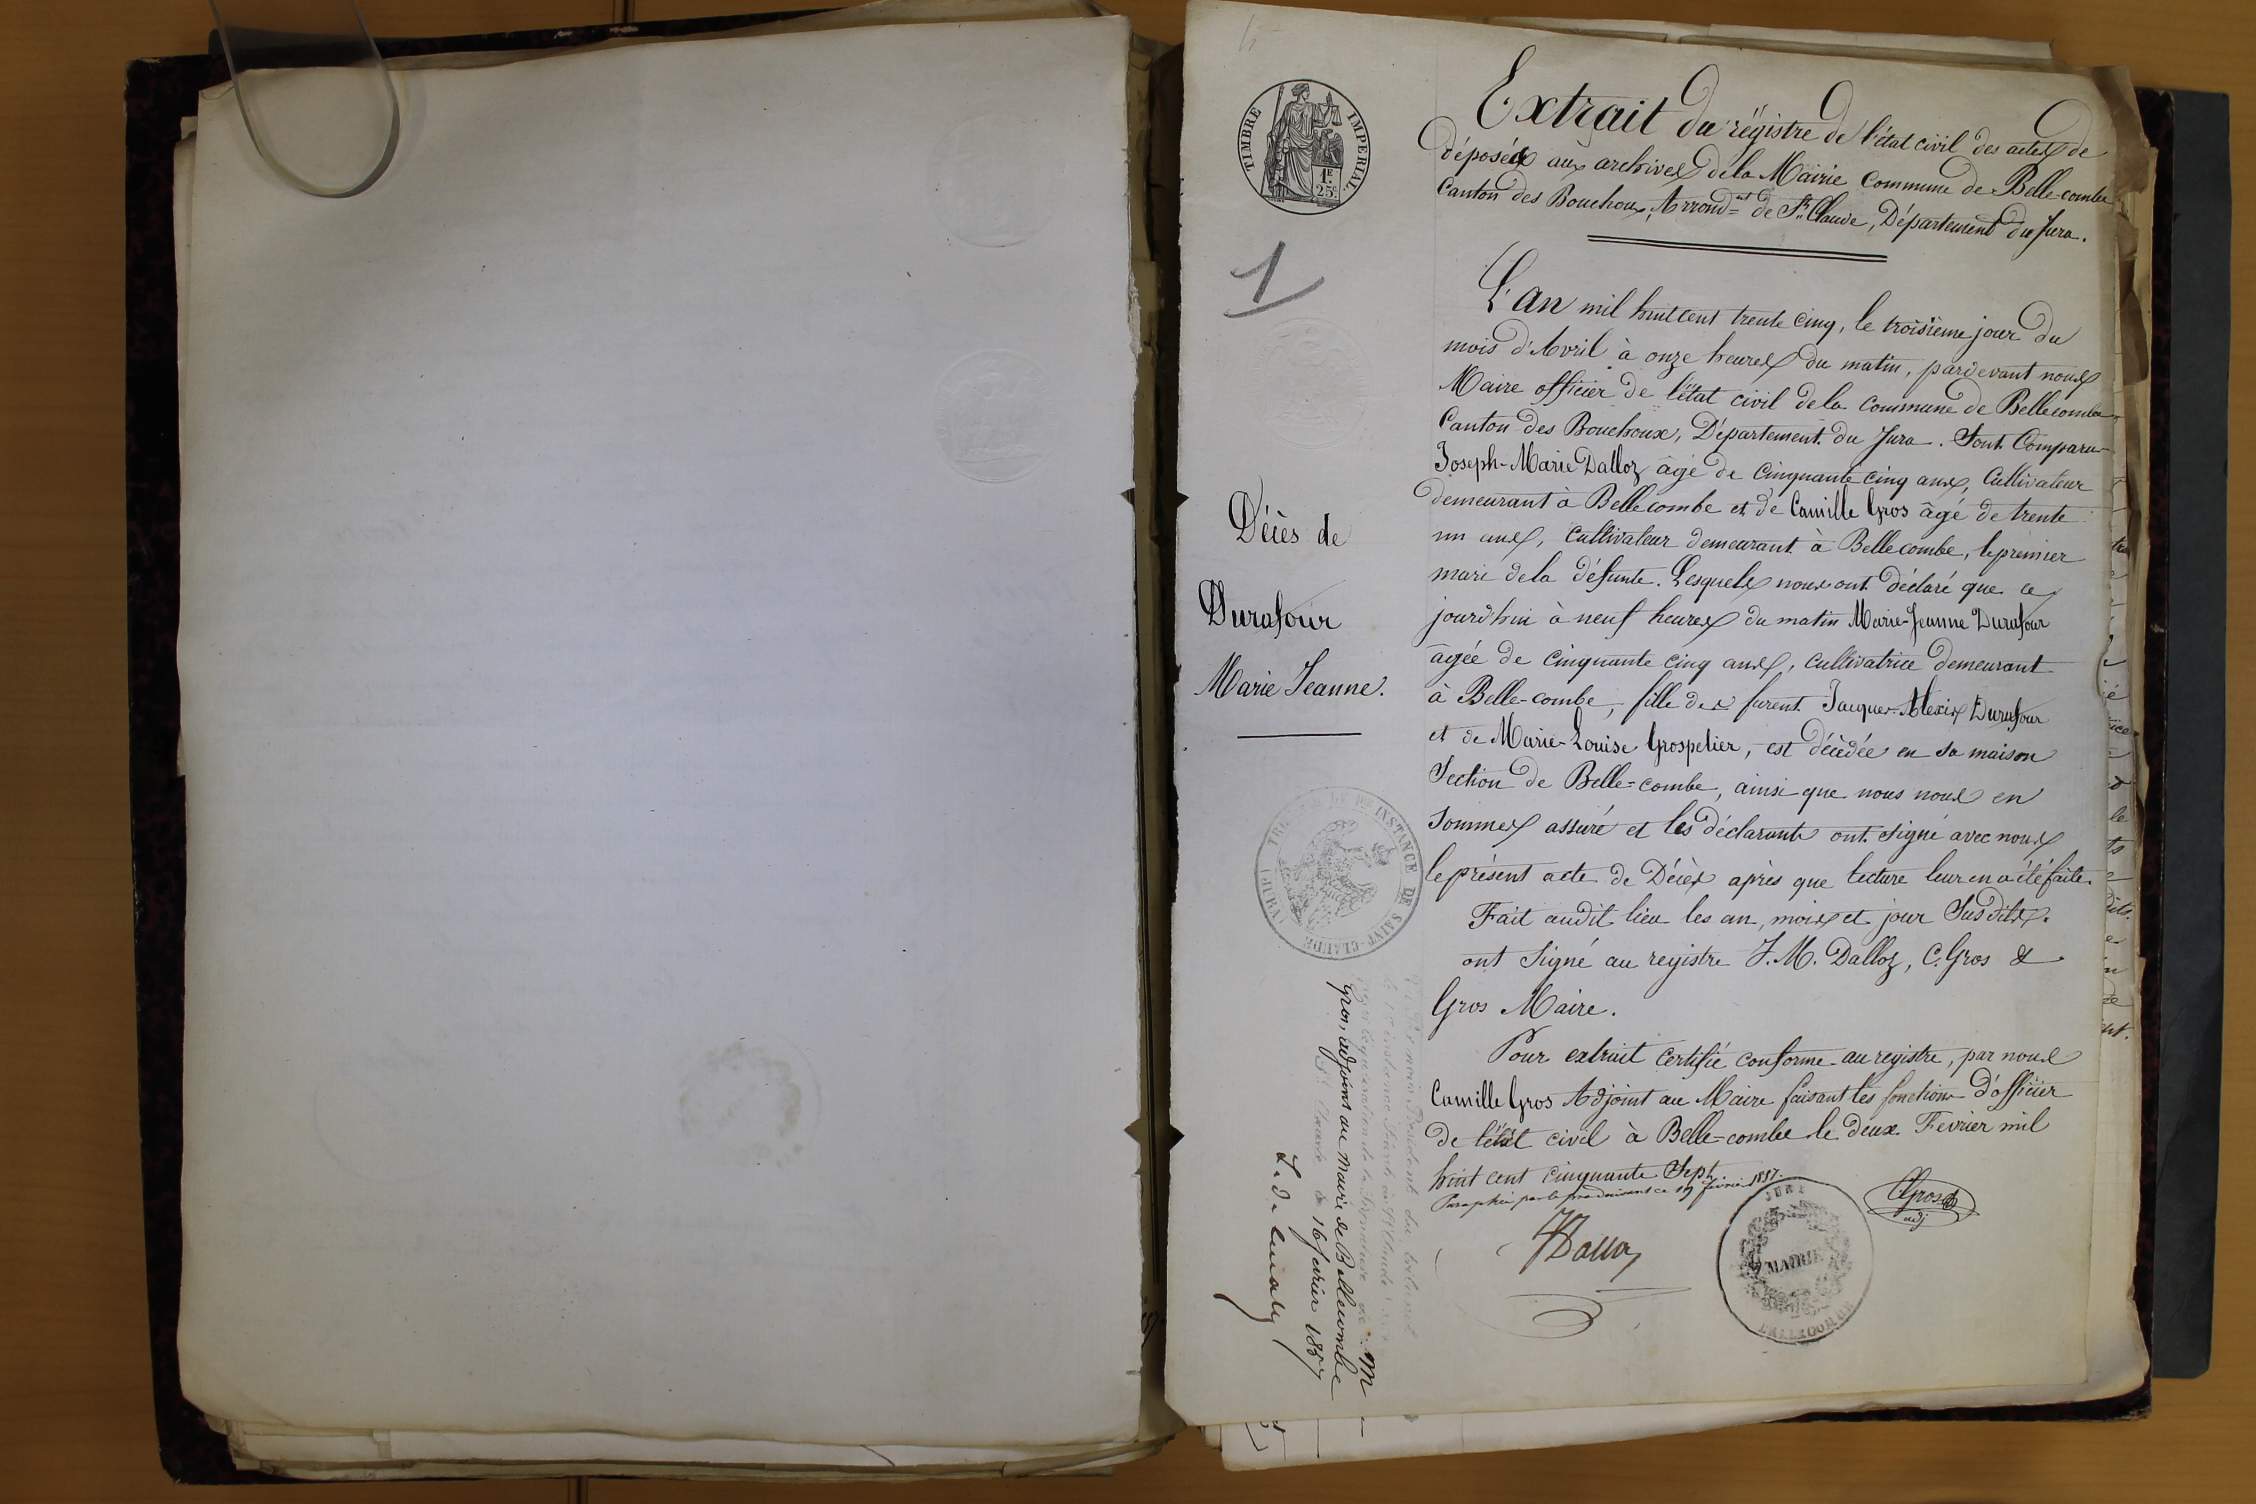 TIMBRE IMPERIAL
1F. 25c.
Extrait du régistre de l'état civil des actes de
déposés aux archives de la Mairie Commune de Belle-combe
Canton des Bouchoux, Arrondnt de St Claude, Département du Jura.
1
L'an mil huit cent trente cinq, le troisième jour du
mois d'Avril à onze heures du matin, pardevant nous
Maire officier de l'état civil de la commune de Bellecombe
Canton des Bouchoux, Département du Jura. Sont Comparus
Joseph-Marie Dalloz âgé de cinquante cinq ans, Cultivateur
demeurant à Bellecombe et de Camille Gros âgé de trente
un ans, Cultivateur demeurant à Bellecombe, le premier
mari de la défunte. Lesquels nous ont déclaré que ce
jourd'hui à neuf heures du matin Marie-Jeanne Durafour
âgée de cinquante cinq ans, cultivatrice demeurant
à Belle-combe, fille des furent Jacques-Alexis Durafour
et de Marie-Louise Grospelier, est décédée en sa maison
Section de Belle-combe, ainsi que nous nous en
sommes assuré et les déclarants ont signé avec nous
le présent acte de Décès après que lecture leur en a été faite.
Fait audit lieu les an, mois et jour Susdits.
ont signé au registre J.M. Dalloz, C. Gros &
Gros Maire.
Pour extrait certifié conforme au registre, par nous
Camille Gros Adjoint au Maire faisant les fonctions d'officier
de l'état civil à Belle-combe le deux Fevrier mil
huit cent cinquante Sept
Paraphé par le 19 février 1857.
JDalloz
CGros
adj
JURA
MAIRIE
BELLECOMBE
Décès de
Durafour
Marie Jeanne.
INSTANCE DE SAINT-CLAUDE (JURA)
président du tribunal
de 1re instance St Claude
légalisation de la signature de M
Gros, adjoint au maire de Bellecombe
St Claude le 16 février 1857